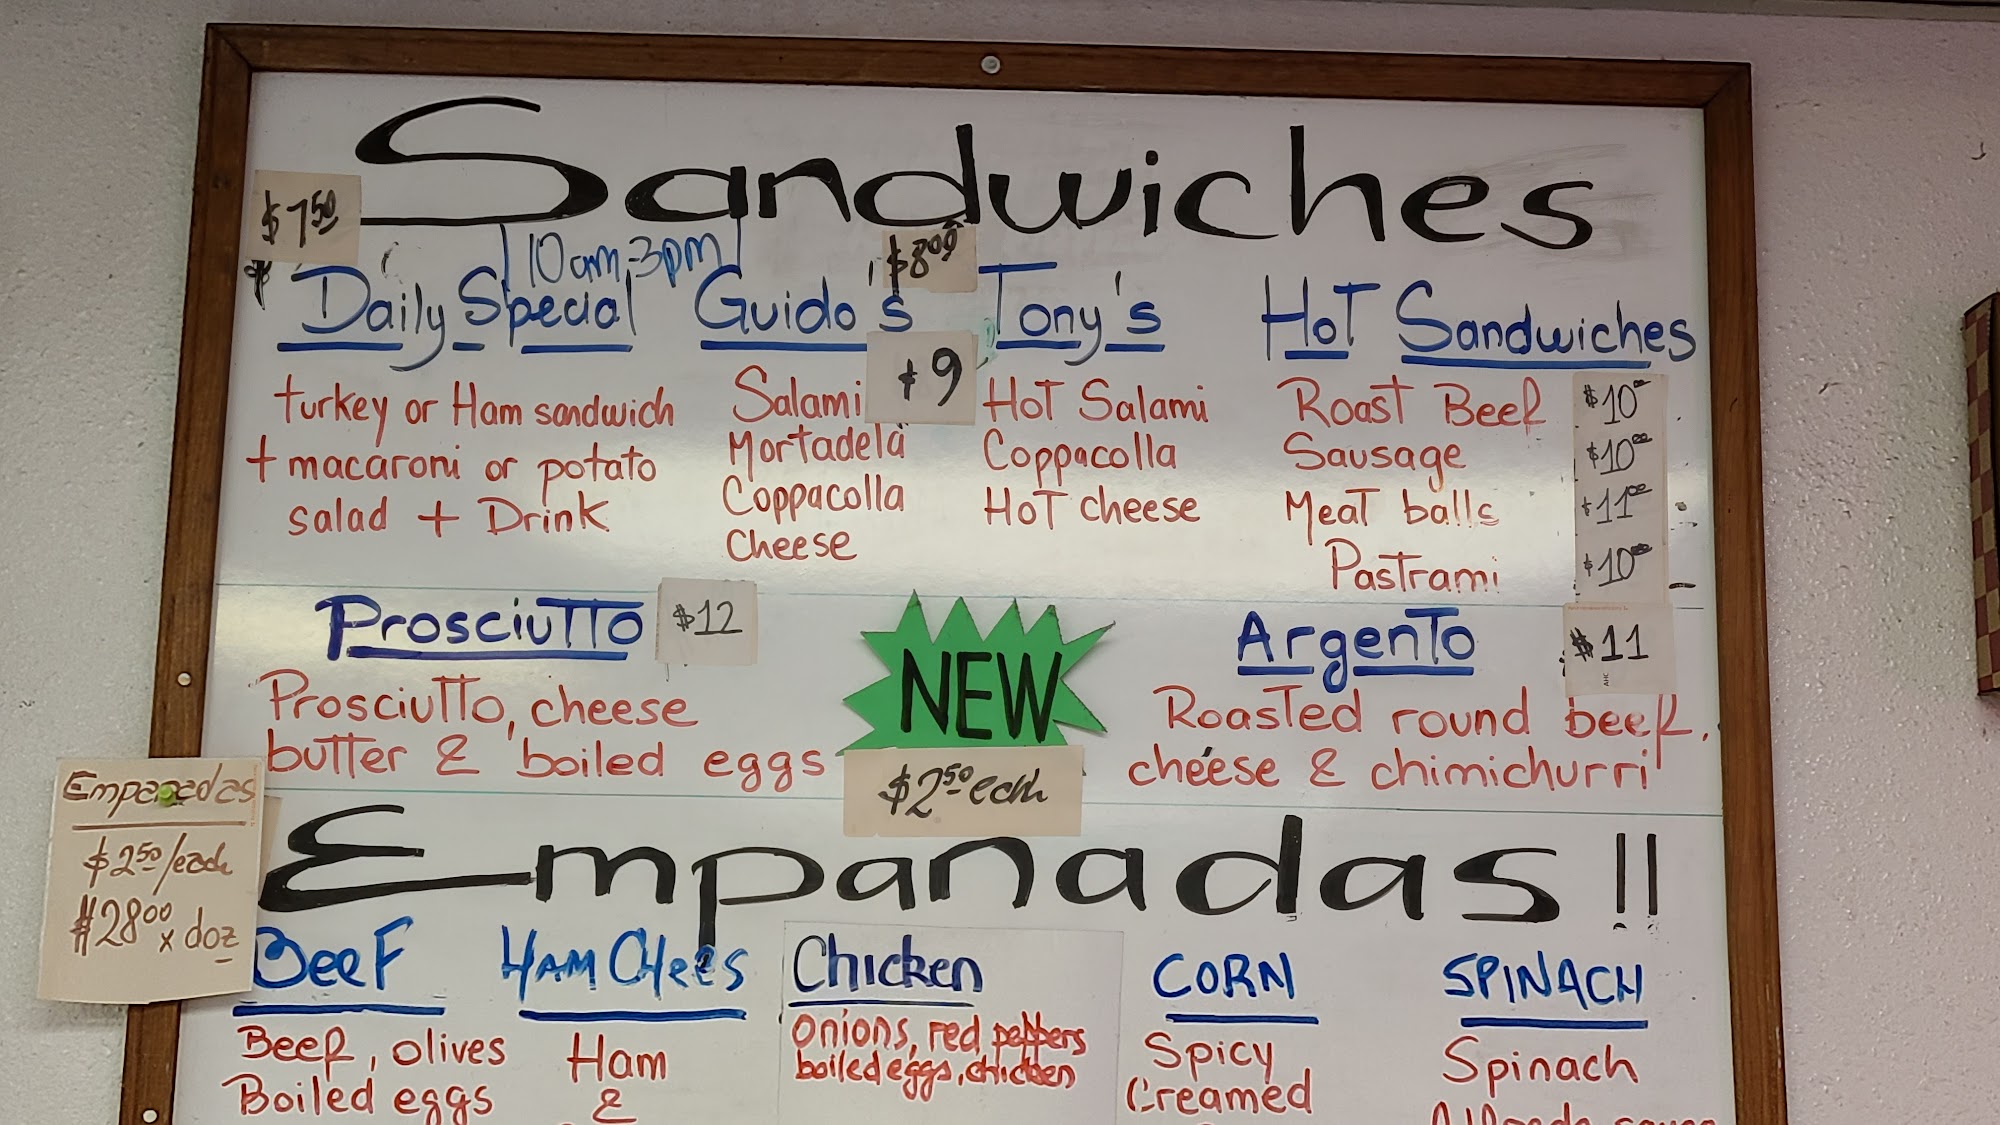 Sandwiches
$7.50
10am-3pm
$8.00
Daily Special
turkey or Ham sandwich
+ macaroni or potato
salad + Drink
Guido's
$9
Salami
Mortadela
Coppacolla
cheese
Tony's
Hot Salami
Coppacolla
Hot cheese
Hot Sandwiches
Roast Beef $10.00
Sausage $10.00
Meat balls $11.00
Pastrami $10.00
Prosciutto $12
Prosciutto, cheese
butter & boiled eggs
NEW
Argento $11
Roasted round beef,
cheese & chimichurri
$2.50 each
Empanadas
$2.50/each
$28.00 x doz
Empanadas!!
Beef
Beef, olives
Boiled eggs
Ham Chees
Ham
&
Chicken
onions, red peppers
boiled eggs, chicken
CORN
Spicy
Creamed
SPINACH
Spinach